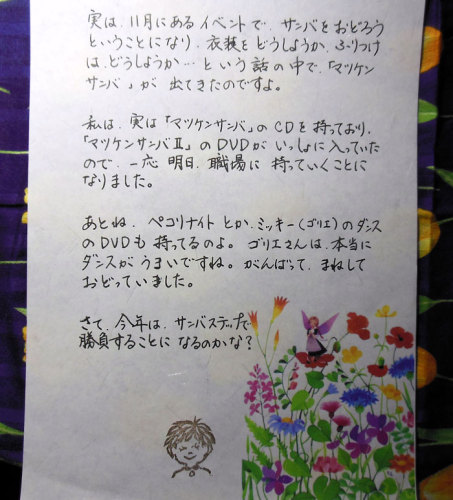 実は、11月にあるイベントで、サンバをおどろう
ということになり、衣装をどうしようか、ふりつけ
は、どうしようか…という話の中で、「マツケン
サンバ」が出てきたのですよ。
私は、実は「マツケンサンバ」のCDを持っており、
「マツケンサンバⅡ」のDVDがいっしょに入っていた
ので、一応明日、職場に持っていくことに
なりました。
あとね、ペコリナイトとか、ミッキー(ゴリエ)のダンス
のDVDも持ってるのよ。ゴリエさんは、本当に
ダンスがうまいですね。がんばって、まねして
おどっていました。
さて、今年は、サンバステップで
勝負することになるのかな?